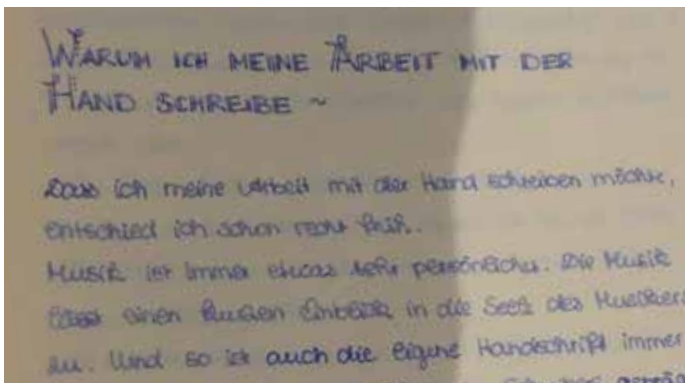 WARUM ICH MEINE ARBEIT MIT DER
HAND SCHREIBE ~
Dass ich meine Arbeit mit der Hand schreiben möchte,
entschied ich schon recht früh.
Musik ist immer etwas sehr persönliches. Die Musik
lässt einen kurzen Einblick in die Seele des Musikers
zu. Und so ist auch die eigene Handschrift immer